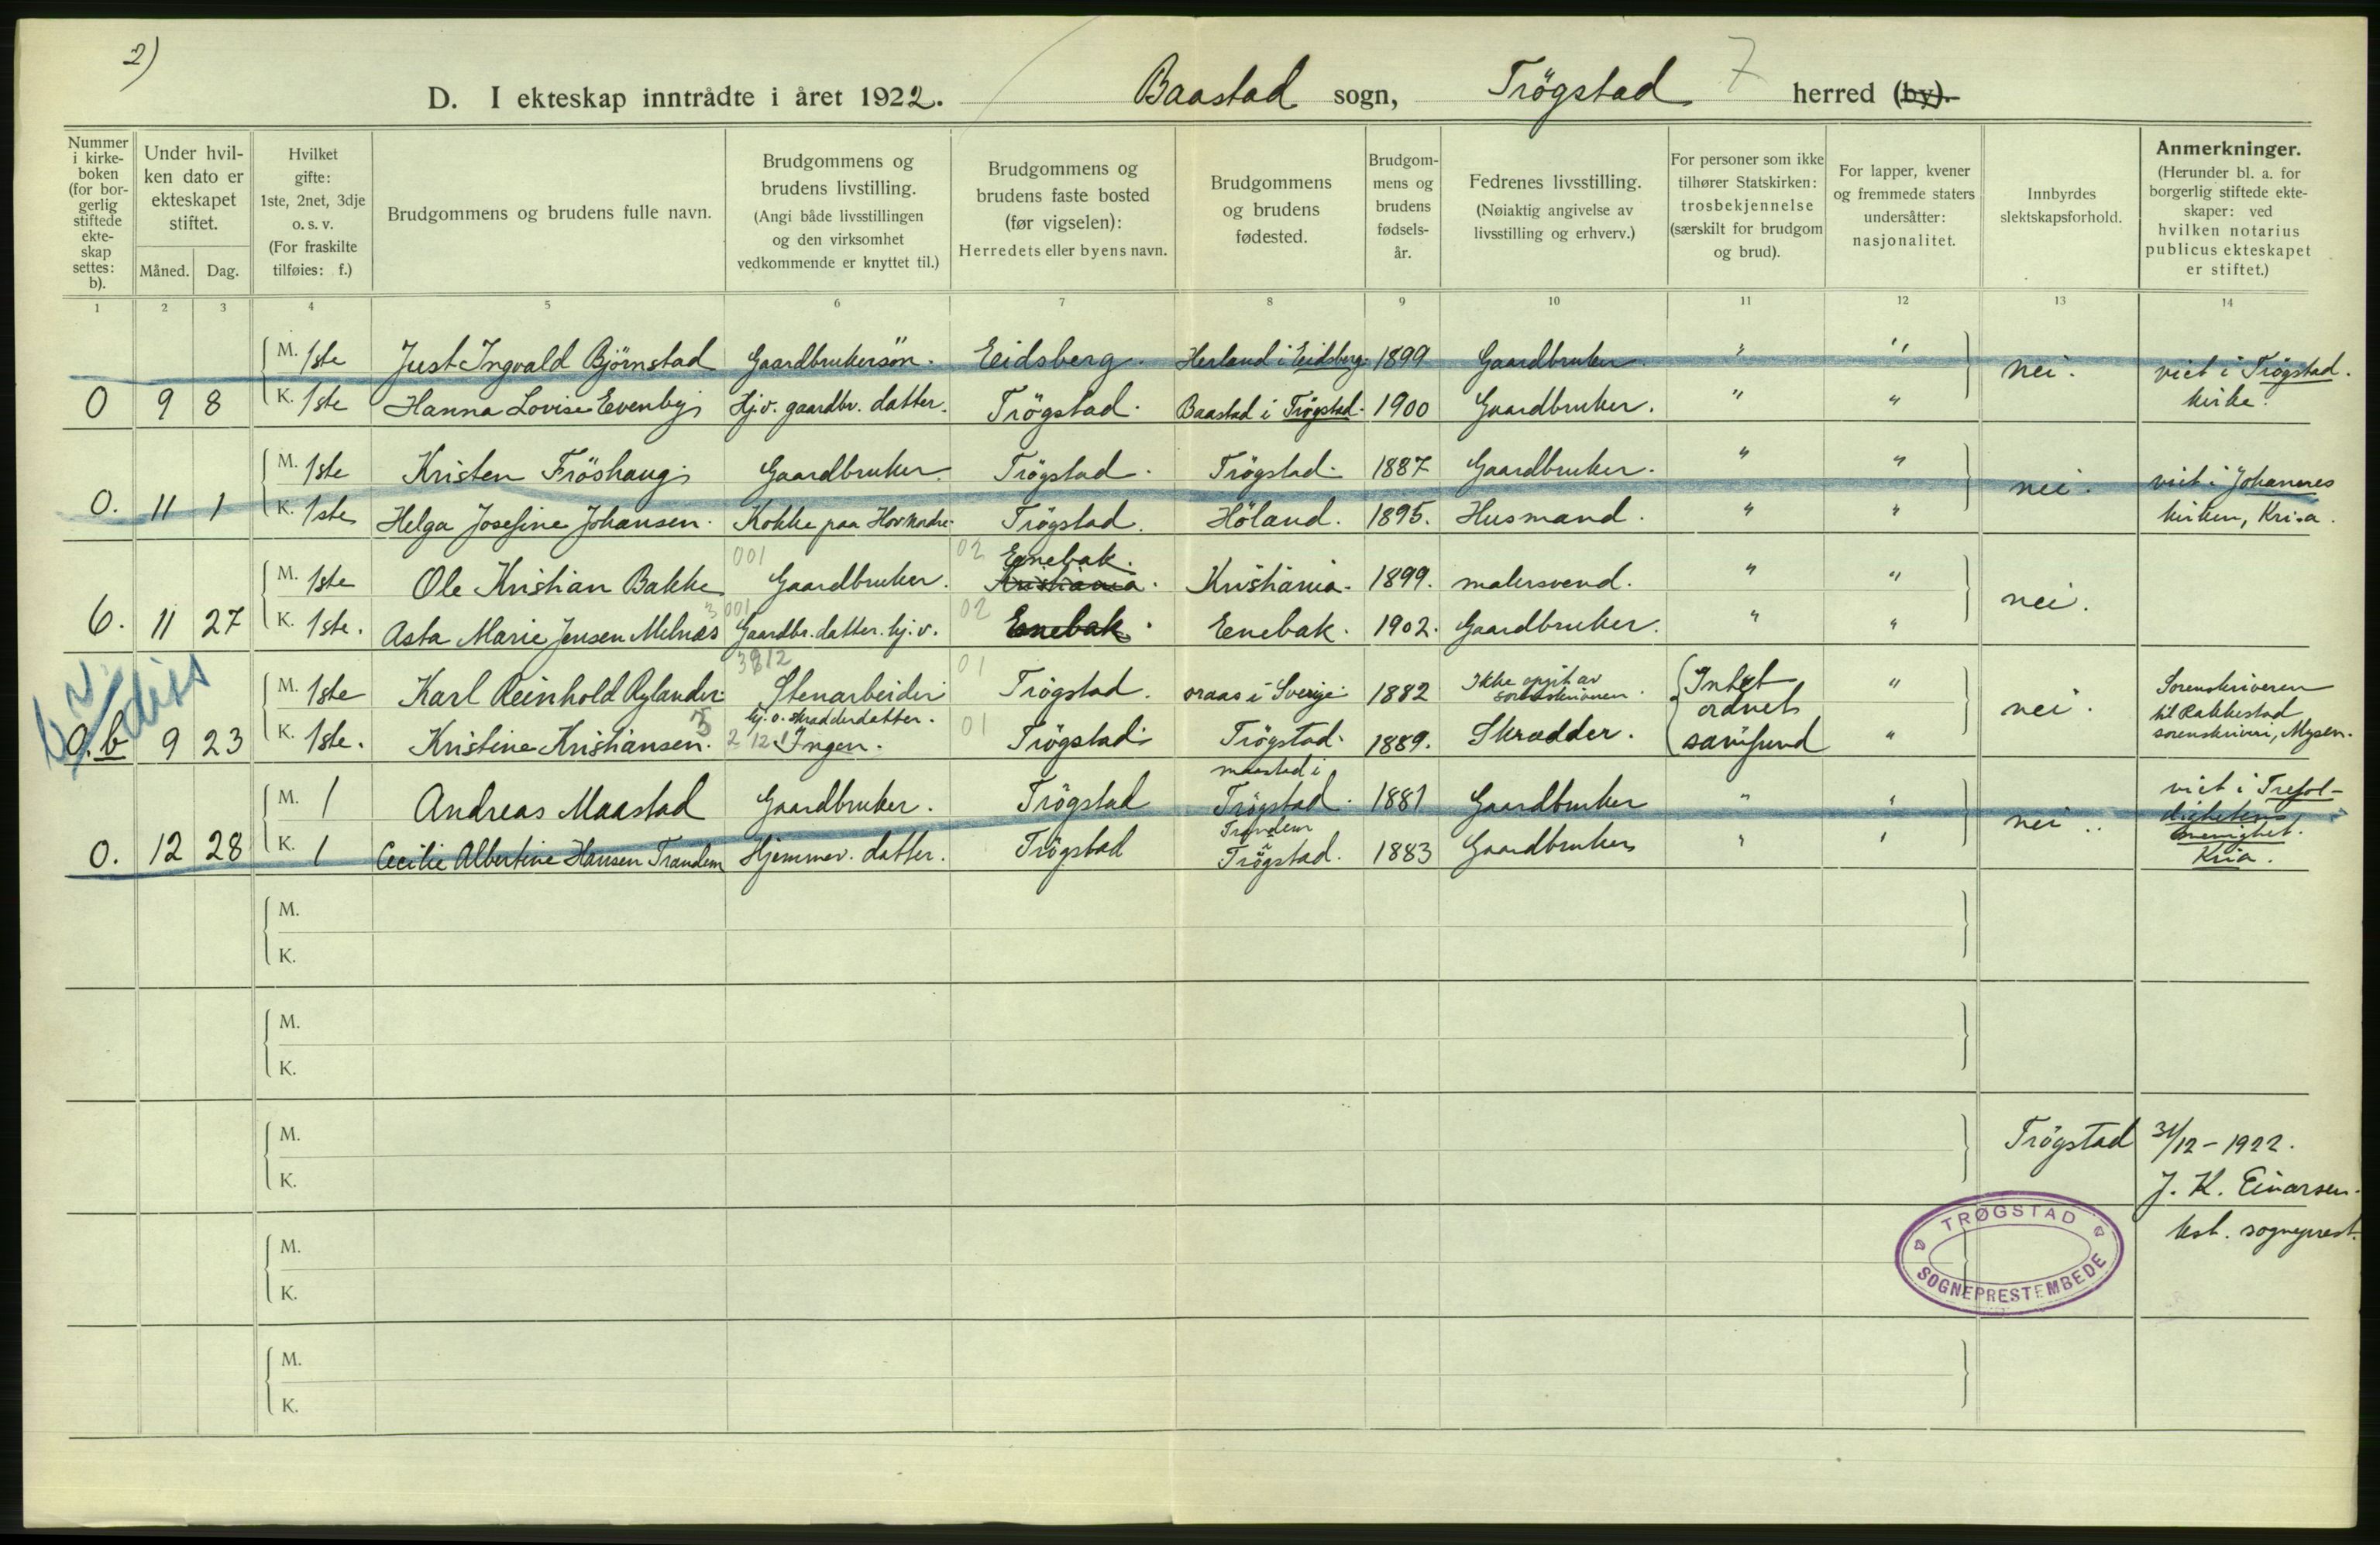 2)
D. I ekteskap inntrådte i året 1922. Baastad sogn, Trögstad 7 herred (by).
Nummer i kirke-boken (for bor-gerlig stiftede ekte-skap settes: b).
Under hvil-ken dato er ekteskapet stiftet.
Måned. Dag.
Hvilket gifte: 1ste, 2net, 3dje o. s. v. (For fraskilte tilføies: f.)
Brudgommens og brudens fulle navn.
Brudgommens og brudens livstilling. (Angi både livsstillingen og den virksomhet vedkommende er knyttet til.)
Brudgommens og brudens faste bosted (før vigselen): Herredets eller byens navn.
Brudgommens og brudens fødested.
Brudgom-mens og brudens fødsels-år.
Fedrenes livsstilling. (Nøiaktig angivelse av livsstilling og erhverv.)
For personer som ikke tilhører Statskirken: trosbekjennelse (særskilt for brudgom og brud).
For lapper, kvener og fremmede staters undersåtter: nasjonalitet.
Innbyrdes slektskapsforhold.
Anmerkninger. (Herunder bl. a. for borgerlig stiftede ekte-skaper: ved hvilken notarius publicus ekteskapet er stiftet.)
1 2 3 4 5 6 7 8 9 10 11 12 13 14
M. 1ste Just Ingvald Björnstad Gaardbrukersön. Eidsberg. Herland i Eidsberg. 1899 Gaardbruker " " nei. viet i Trögstad.
0 9 8 K. 1ste Hanna Lovise Evenby Hj.v. gaardbr. datter. Trögstad. Baastad i Trögstad. 1900 Gaardbruker. " " kirke.
M. 1ste Kristen Fröshaug Gaardbruker. Trögstad. Trögstad. 1887 Gaardbruker. " " nei. viet i Johannes
0. 11 1 K. 1ste Helga Josefine Johansen. Kokke paa Hov nordre. Trögstad. Höland. 1895. Husmand. " " kirken, Kr.a.
001 02 Enebak.
M. 1ste Ole Kristian Bakke Gaardbruker. Kristiania. Kristiania. 1899. malersvend. " " nei.
3 001 02
6. 11 27 K. 1ste. Asta Marie Jensen Melnæs Gaardbr. datter. hj. v. Enebak. Enebak. 1902. Gaardbruker. " "
3812 01
M. 1ste Karl Reinhold Rylander. Stenarbeider Trögstad. oraas i Sverige. 1882 Ikke opgit av sorenskriveren. Intet ordnet " nei. Sorenskriveren
til Rakkestad
hj. v. skrædderdatter.
0.b 9 23 K. 1ste. Kristine Kristiansen. Ingen. 01 Trögstad. Trögstad. 1889. Skrædder. samfund " sorenskriveri, Mysen.
maastad i
M. 1 Andreas Maastad Gaardbruker. Trögstad Trögstad. 1881 Gaardbruker " " nei. viet i Trefol-
dighetens
Trandem
0. 12 28 K. 1 Cecilie Albertine Hansen Trandem Hjemmev. datter. Trögstad Trögstad. 1883 Gaardbruker " "
Kria.
M.
K.
M.
K.
M. Trögstad 31/12 - 1922.
K. J. K. Einarsen.
M. TRØGSTAD SOGNEPRESTEMBEDE kst. sogneprest.
K.
M.
K.